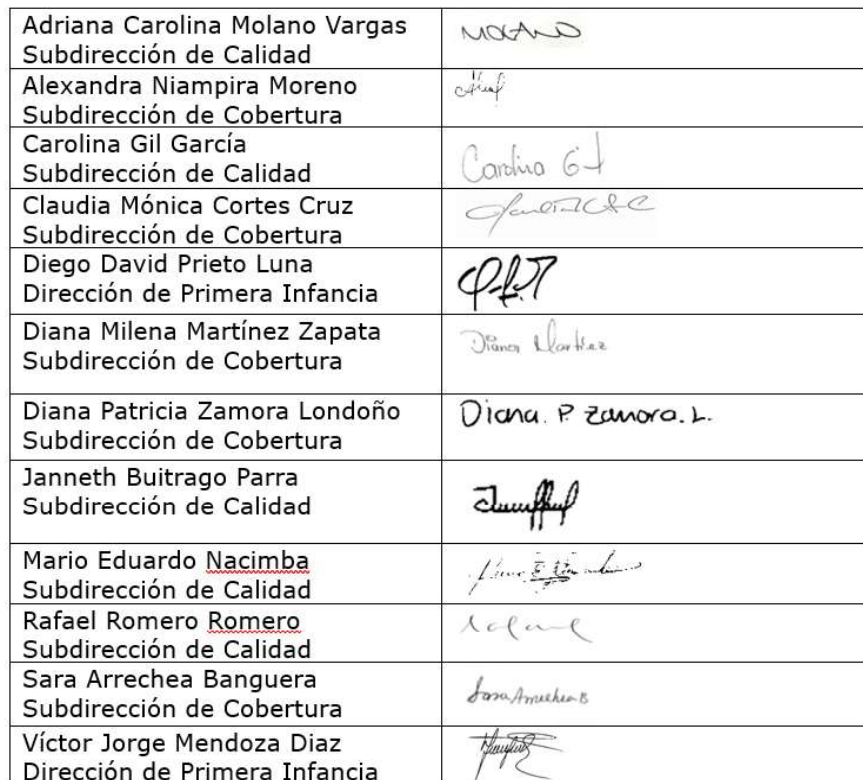 Adriana Carolina Molano Vargas
Subdirección de Calidad
MOLANO
Alexandra Niampira Moreno
Subdirección de Cobertura
Carolina Gil García
Subdirección de Calidad
Carolina G
Claudia Mónica Cortes Cruz
Subdirección de Cobertura
Diego David Prieto Luna
Dirección de Primera Infancia
Diana Milena Martínez Zapata
Subdirección de Cobertura
Diana Martínez
Diana Patricia Zamora Londoño
Subdirección de Cobertura
Diana. P. Zamora. L.
Janneth Buitrago Parra
Subdirección de Calidad
Mario Eduardo Nacimba
Subdirección de Calidad
Rafael Romero Romero
Subdirección de Calidad
Rafael
Sara Arrechea Banguera
Subdirección de Cobertura
Sara Arrechea B
Víctor Jorge Mendoza Diaz
Dirección de Primera Infancia